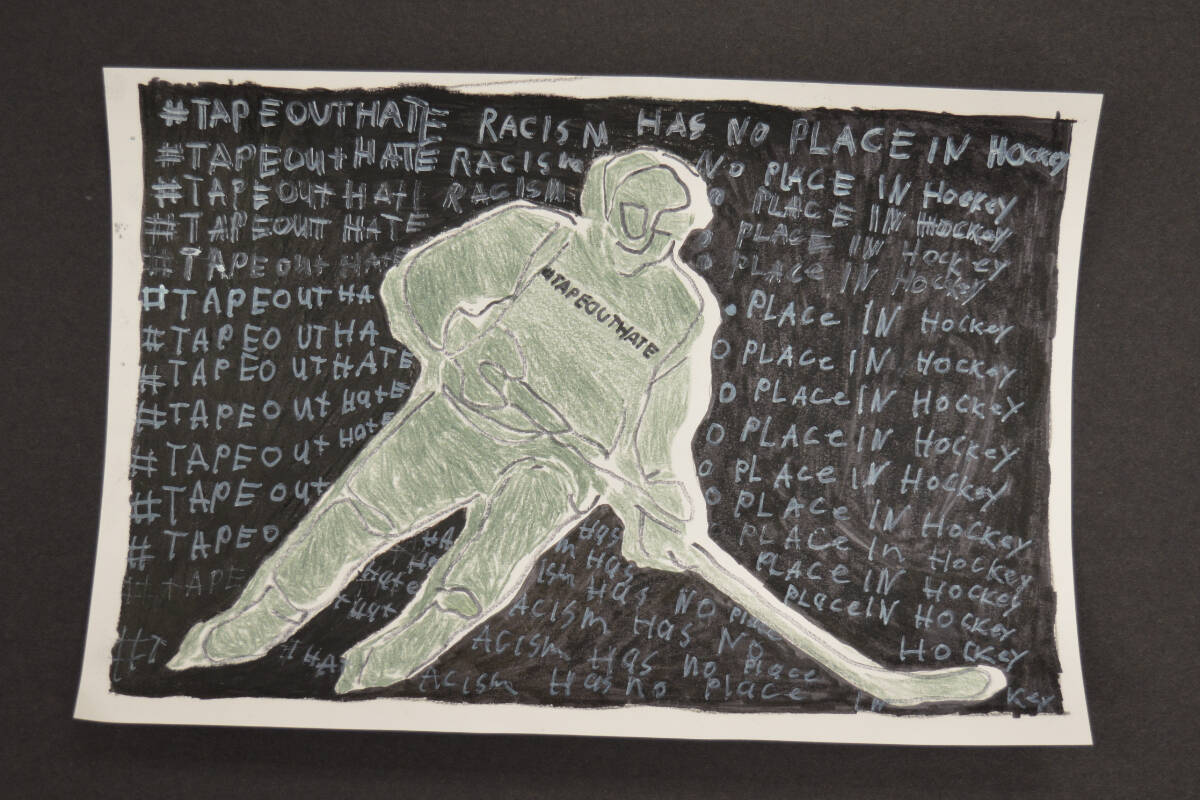 #TAPEOUTHATE RACISM HAS NO PLACE IN HOCKEY
#TAPEOUt HATE RACISM NO PLACE IN HOCKEY
#TAPEOUt HATE RACISM PLACE IN HOCKEY
#TAPEOUT HATE PLACE IN HOCKEY
#TAPEOUt HATE PLACE IN HOCKEY
#TAPEOUTHATE
#TAPEOUt HA PLACe IN HOCKEY
#TAPEOUTHA O PLACe IN HOCKEY
#TAPEOUTHATE O PLACe IN HOCKEY
#TAPEOUt HatE O PLACe IN HOCKEY
#TAPEOUt HatE O PLACE IN HOCKEY
#TAPEOUt O PLACE IN HOCKEY
#TAPEO Has PLACE In HOCKEY
#tAPE m Has PLACE IN HOCKEY
Hate ism Has NO place PLaceIN HOCKEY
#T HAt ACISM Has NO place HOCKEY
ACISm Has no place
ACism Has no place IN Key